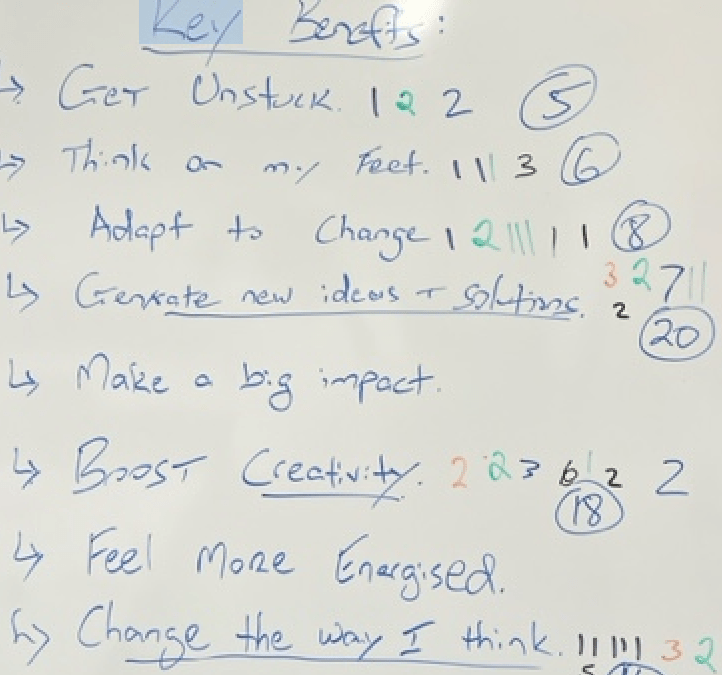 Key Benefits:
↳ Get Unstuck. 1 2 2 5
↳ Think on my Feet. 1 1 1 3 6
↳ Adapt to Change 1 2 1 1 1 1 1 8
↳ Generate new ideas + solutions. 3 2 7 1 1
2 20
↳ Make a big impact.
↳ Boost Creativity. 2 2 3 6 1 2 2
18
↳ Feel More Energised.
↳ Change the way I think. 1 1 1 1 1 3 2